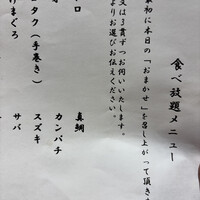 食べ放題メニュー
最初に本日の『おまかせ』を召し上がって頂き
又は3貫ずつお伺いいたします。
よりお選びお伝えください。
真鯛
カンパチ
スズキ
サバ
ロ
タク(手巻き)
けまぐろ